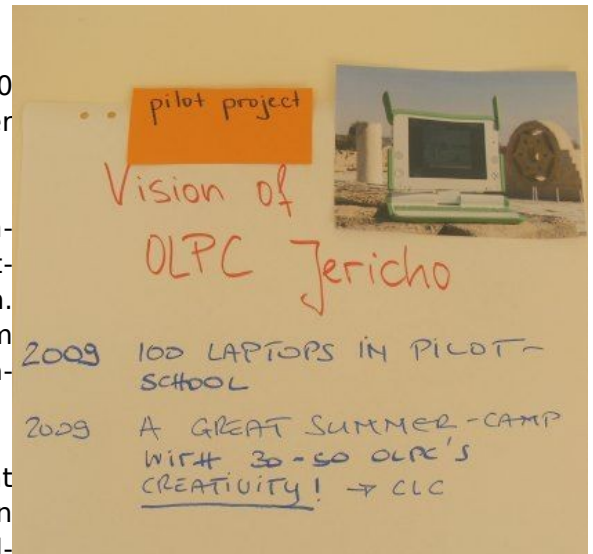 pilot project
Vision of
OLPC Jericho
2009 100 LAPTOPS IN PILOT-
SCHOOL
2009 A GREAT SUMMER-CAMP
WITH 30-50 OLPC'S
CREATIVITY! → CLC